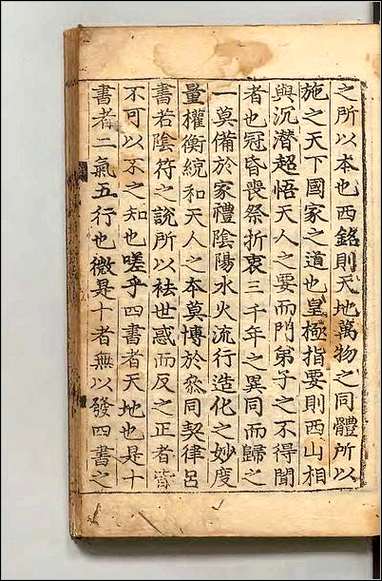 之所以本也西銘則天地萬物之同體所以
施之天下國家之道也皇極指要則西山相
與沉潜超悟天人之要而門弟子之不得聞
者也冠昏喪祭折衷三千年之異同而歸之
一莫備於家禮陰陽水火流行造化之妙度
量權衡統和天人之本莫博於叅同契律呂
書若陰符之說所以袪世惑而反之正者皆
不可以不之知也嗟乎四書者天地也是十
書者二氣五行也微是十者無以發四書之